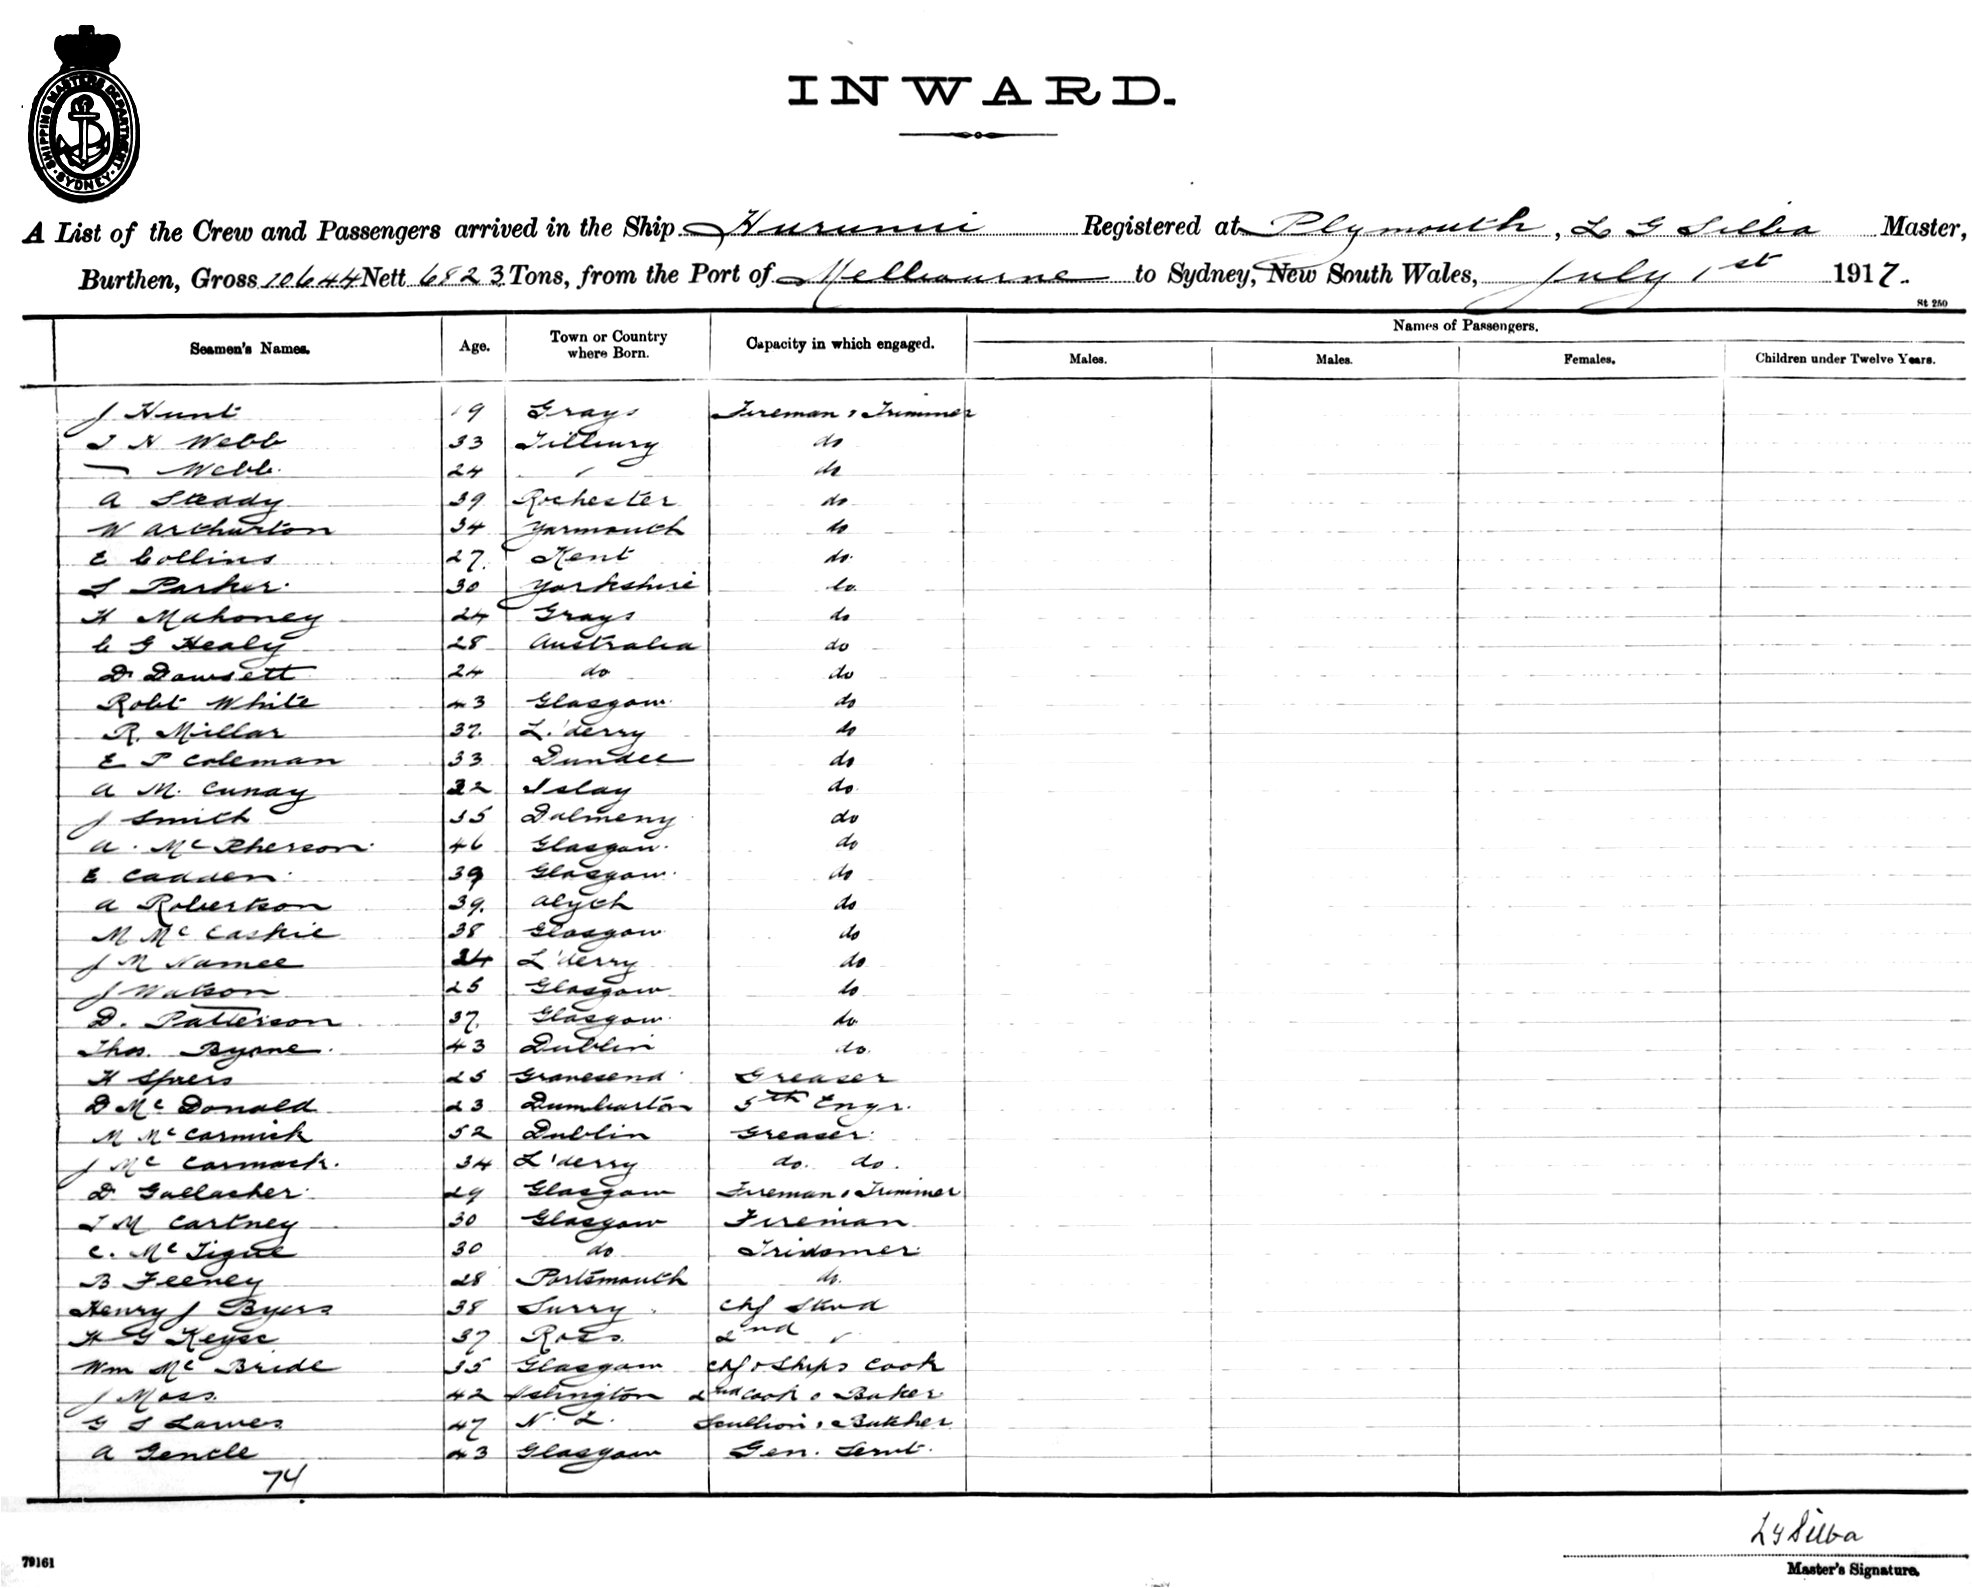 SHIPPING MASTERS DEPARTMENT
SYDNEY
INWARD.
A List of the Crew and Passengers arrived in the Ship Hurunui Registered at Plymouth, L G Silba Master,
Burthen, Gross 10644 Nett 6823 Tons, from the Port of Melbourne to Sydney, New South Wales, July 1st 1917.
St 250
Seamen's Names. Age. Town or Country where Born. Capacity in which engaged. Names of Passengers.
Males. Males. Females. Children under Twelve Years.
J Hunt 19 Grays Fireman & Trimmer
T H Webb 33 Tilbury do
— Webb. 24 do
A Steady 39 Rochester do
W Arthurton 34 Yarmouth do
E Collins 27. Kent do.
S Parker. 30 Yorkshire do.
H Mahoney 24 Grays do
C G Healy 28 Australia do
D. Dowsett 24 do do
Robt White 43 Glasgow. do
R. Millar 37. L'derry do
E P Coleman 33 Dundee do
A M. Cunay 22 Islay do.
J Smith 35 Dalmeny do
A. McPherson. 46 Glasgow. do
E Cadden. 39 Glasgow. do
A Robertson 39. Alyth do
M McCaskie 38 Glasgow do
J M Namee 24 L'derry do
J Watson 25 Glasgow do
D. Patterson 37. Glasgow. do
Thos. Byrne. 43 Dublin do.
H Spiers 25 Gravesend Greaser
D McDonald 23 Dumbarton 5th Engr.
M McCormick 52 Dublin Greaser.
J McCormack. 34 L'derry do. do.
D. Gallacher. 29 Glasgow Fireman & Trimmer
T M Cartney 30 Glasgow Fireman
C. McTigue 30 do Trimmer
B Feeney 28 Portsmouth do.
Henry J Byers 38 Surry Chf Stwd
H G Keyse 37 Ross 2nd
Wm McBride 35 Glasgow Chf & Ships Cook
J Moss. 42 Islington 2nd Cook & Baker
G S Lawes 47 N. Z. Scullion & Butcher
A Gentle 43 Glasgow Gen. Servt.
74
L G Silba
79161
Master's Signature.